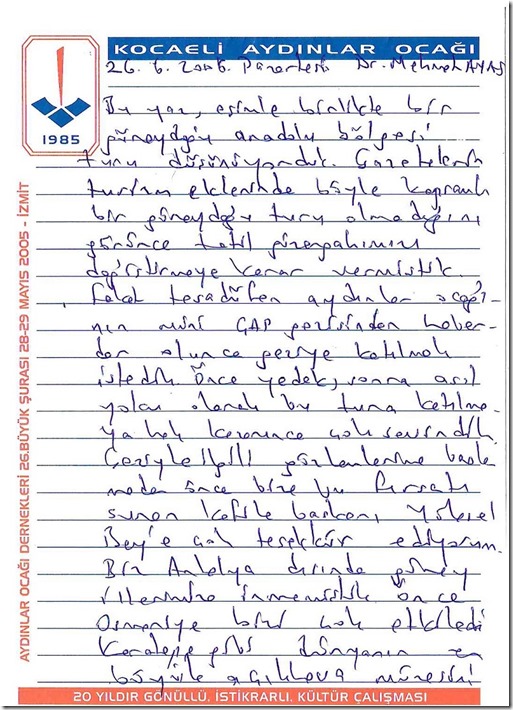 KOCAELİ AYDINLAR OCAĞI
26. 6. 2006. Pazartesi Dr. Mehmet AYAS
1985
Bu yaz, eşimle birlikte bir
güneydoğu anadolu bölgesi
turu düşünüyorduk. Gazetelerin
turizm eklerinde böyle kapsamlı
bir güneydoğu turu olmadığını
görünce tatil güzergahımızı
değiştirmeye karar vermiştik.
Fakat tesadüfen aydınlar ocağı-
nın mini GAP gezisinden haber-
dar olunca geziye katılmak
istedik. Önce yedek, sonra asıl
yolcu olarak bu tura katılma-
ya hak kazanınca çok sevindik.
Geziyle ilgili gözlemlerime başla
madan önce bize bu fırsatı
sunan kafile başkanı Yüksel
Bey'e çok teşekkür ediyorum.
Biz Antalya dışında güney
illerimize inmemiştik. Önce
Osmaniye bizi çok etkiledi
Karatepe gibi dünyanın en
büyük açıkhava müzesini
AYDINLAR OCAĞI DERNEKLERİ 26.BÜYÜK ŞURASI 28-29 MAYIS 2005 - İZMİT
20 YILDIR GÖNÜLLÜ, İSTİKRARLI, KÜLTÜR ÇALIŞMASI